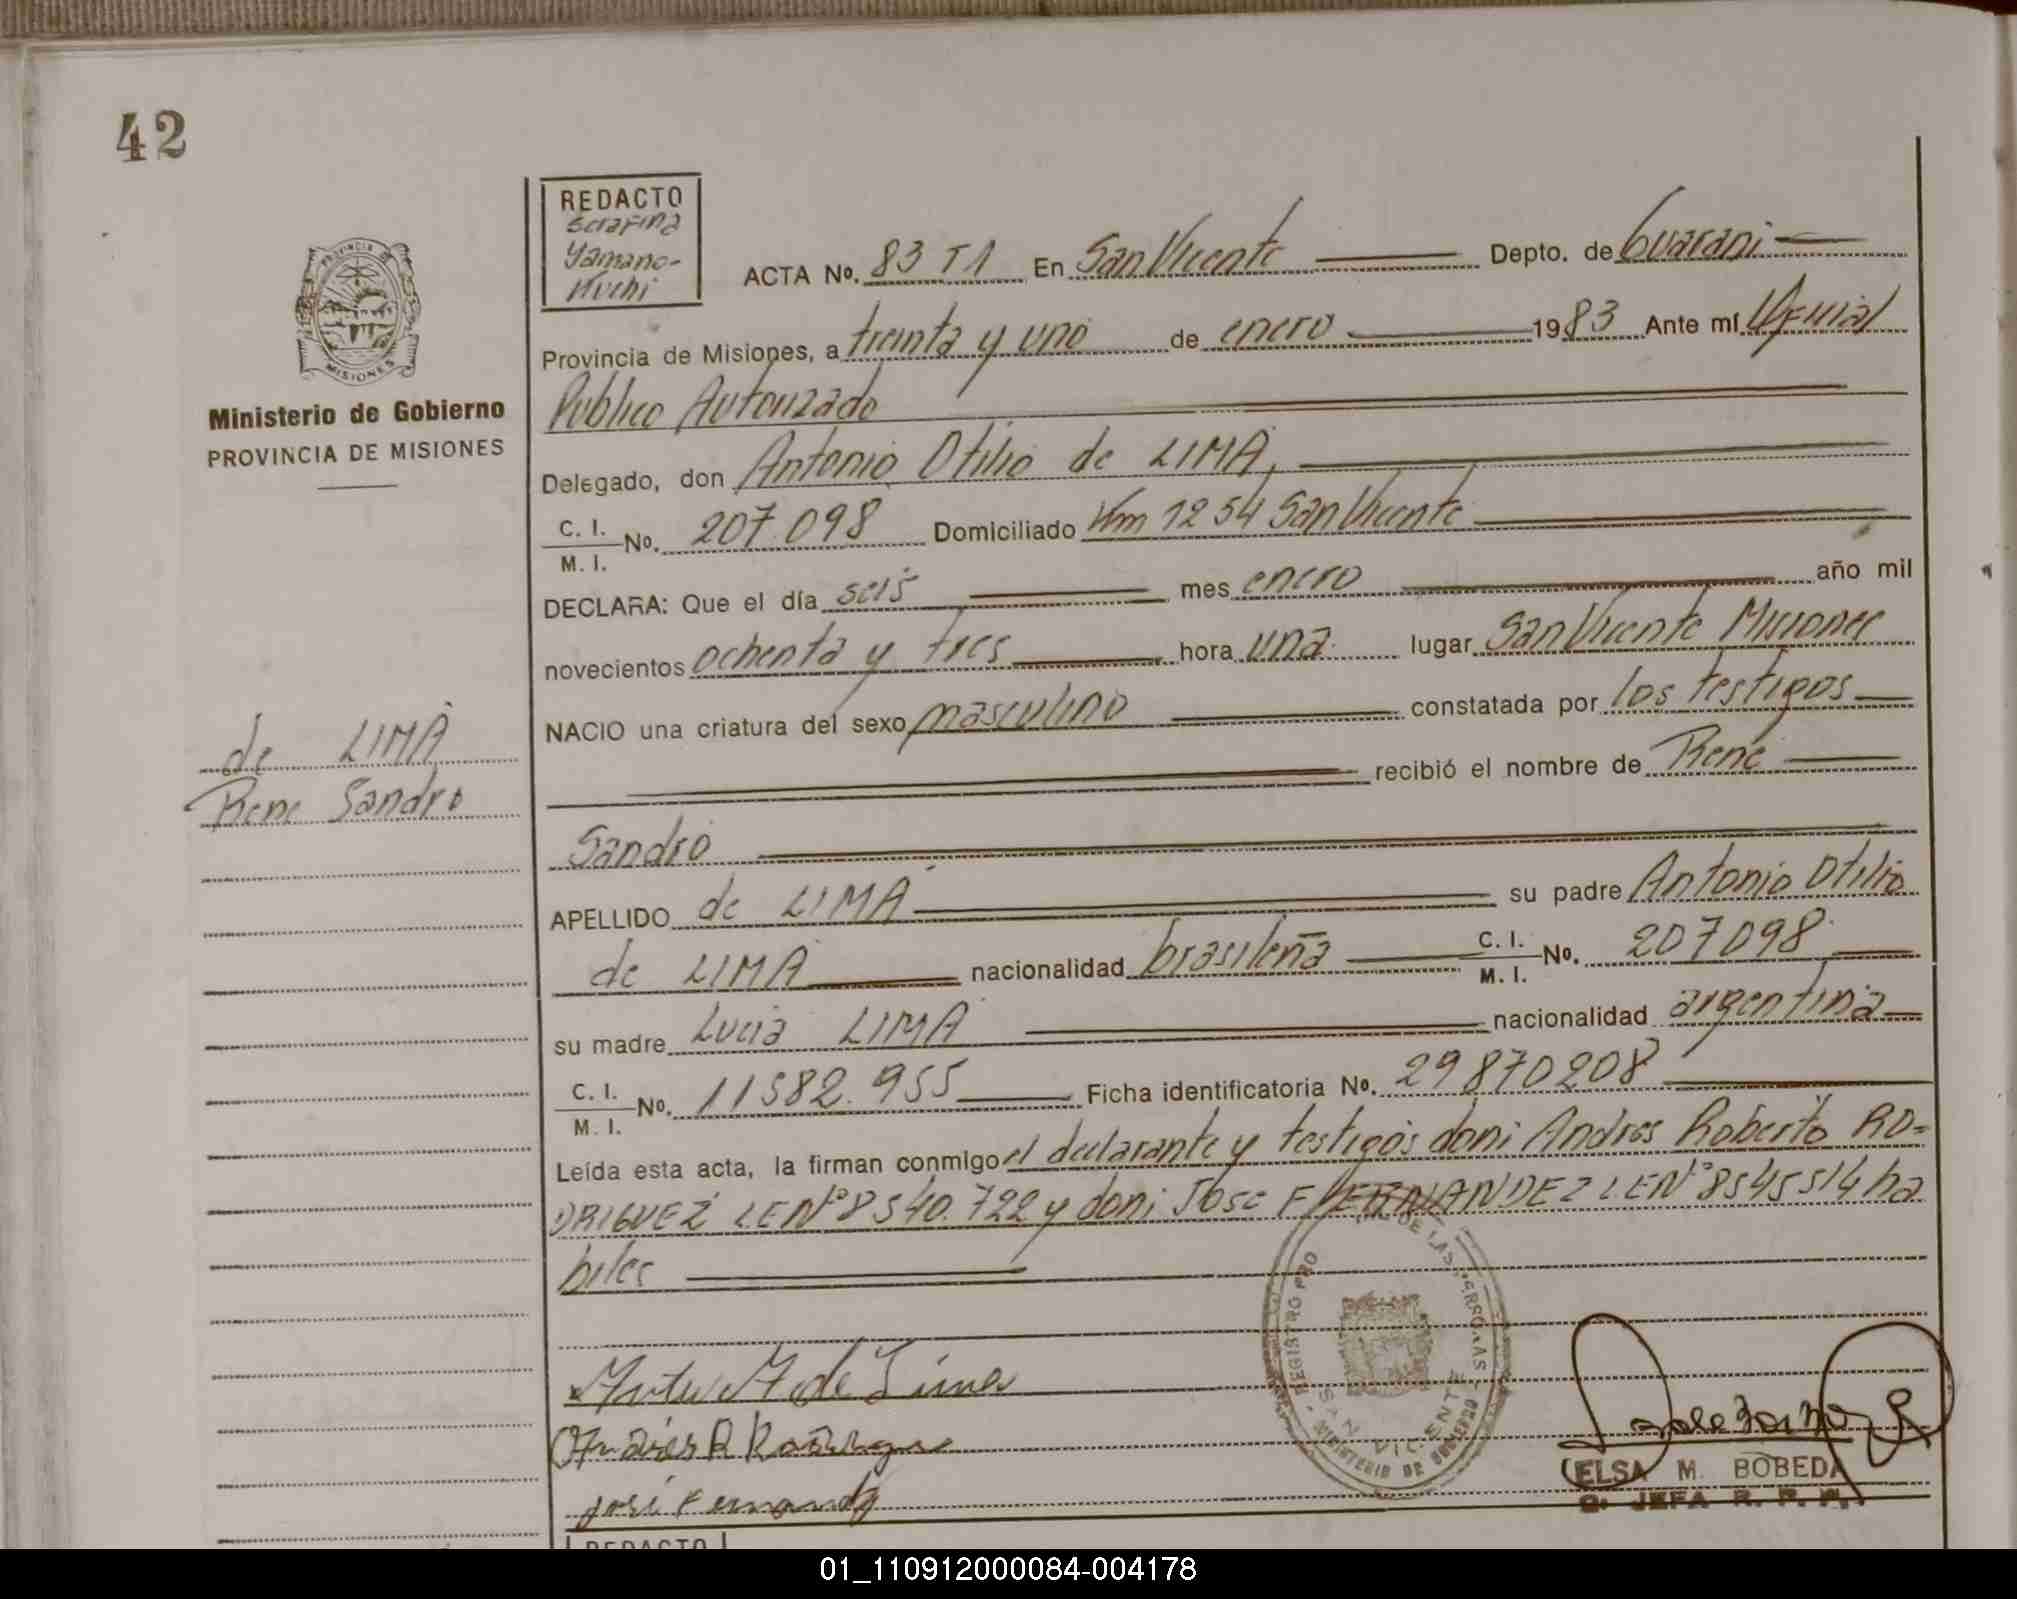 42
REDACTO
Serafina
Yamano-
Huchi
PROVINCIA DE
MISIONES
Ministerio de Gobierno
PROVINCIA DE MISIONES
ACTA No. 83 T1 En San Vicente Depto. de Guarani
Provincia de Misiones, a treinta y uno de enero 1983 Ante mí Oficial
Publico Autorizado
Delegado, don Antonio Otilio de LIMA,
C. I.
M. I. No. 207.098 Domiciliado Km 1254 San Vicente
DECLARA: Que el día seis mes enero año mil
novecientos ochenta y tres hora una lugar San Vicente Misiones
NACIO una criatura del sexo masculino constatada por los testigos
recibió el nombre de René
de LIMA
Rene Sandro
Sandro
APELLIDO de LIMA su padre Antonio Otilio
de LIMA nacionalidad brasileña C. I.
M. I. No. 207098
su madre Lucia LIMA nacionalidad argentina
C. I.
M. I. No. 11582.955 Ficha identificatoria No. 29870208
Leída esta acta, la firman conmigo el declarante y testigos don: Andres Roberto RO=
DRIGUEZ LE Nº 8540.722 y don: Jose FERNANDEZ LE Nº 8545514 ha
biles
REGISTRO PRO DE LAS PERSONAS
SAN VICENTE
MINISTERIO DE GOBIERNO
de Lima
Andrés R Rodriguez
José Fernandez
ELSA M. BOBEDA
JEFA R. P.
REDACTO
01_110912000084-004178